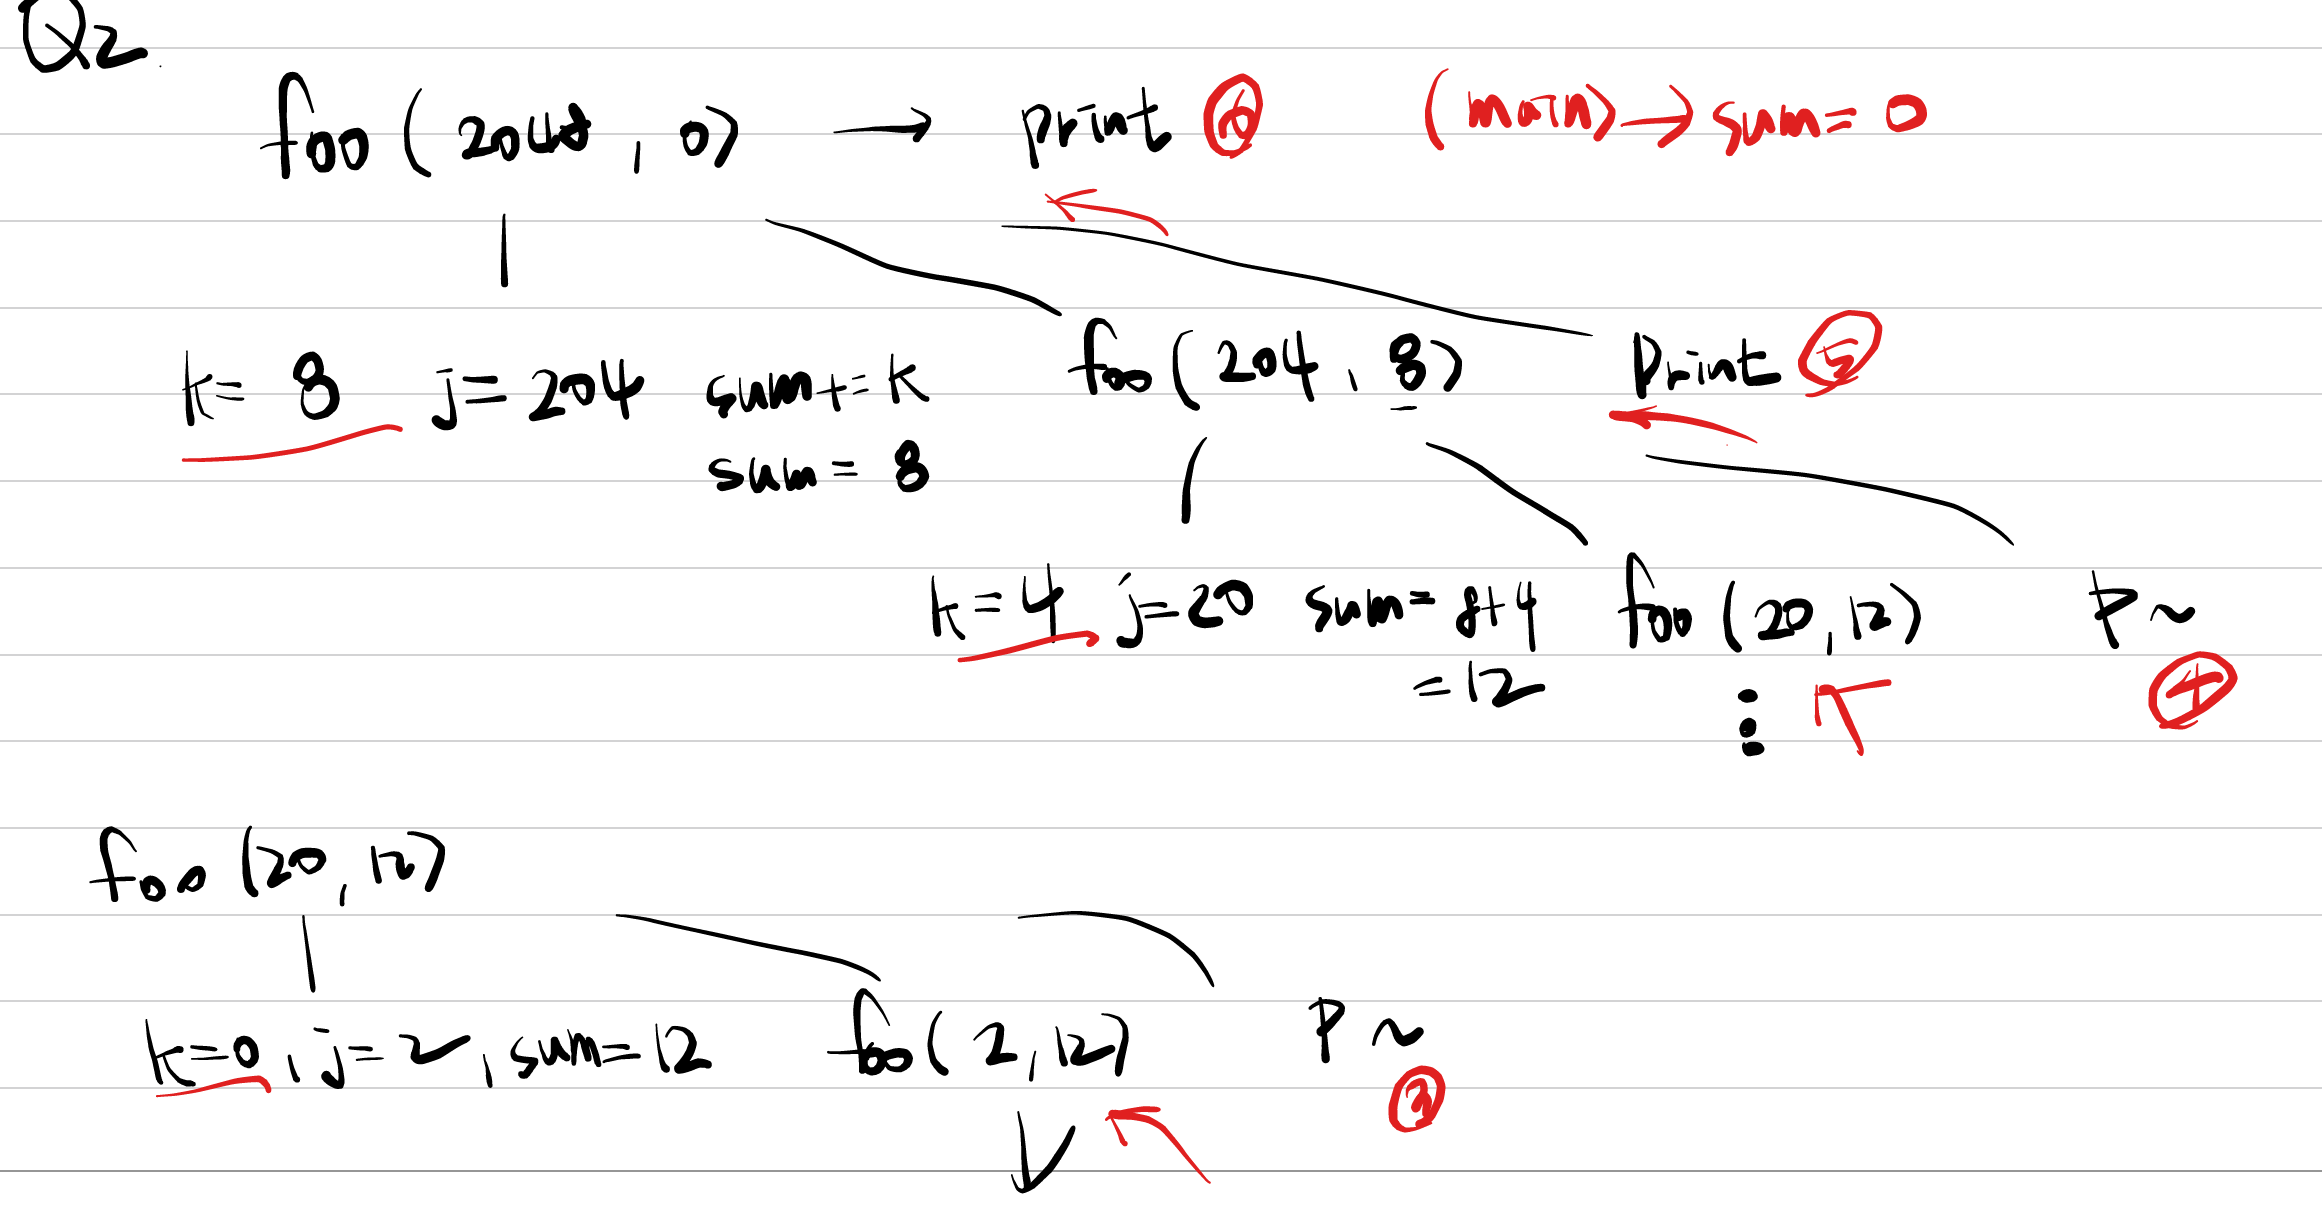 Q2.
foo (2048, 0) → print ⑥ (main) → sum = 0
k = 8 j = 204 sum += k foo (204, 8) Print ⑤
sum = 8
k = 4 j = 20 sum = 8+4 foo (20, 12) P~
= 12 ④
foo (20, 12)
k=0, j=2, sum=12 foo (2, 12) P~
③